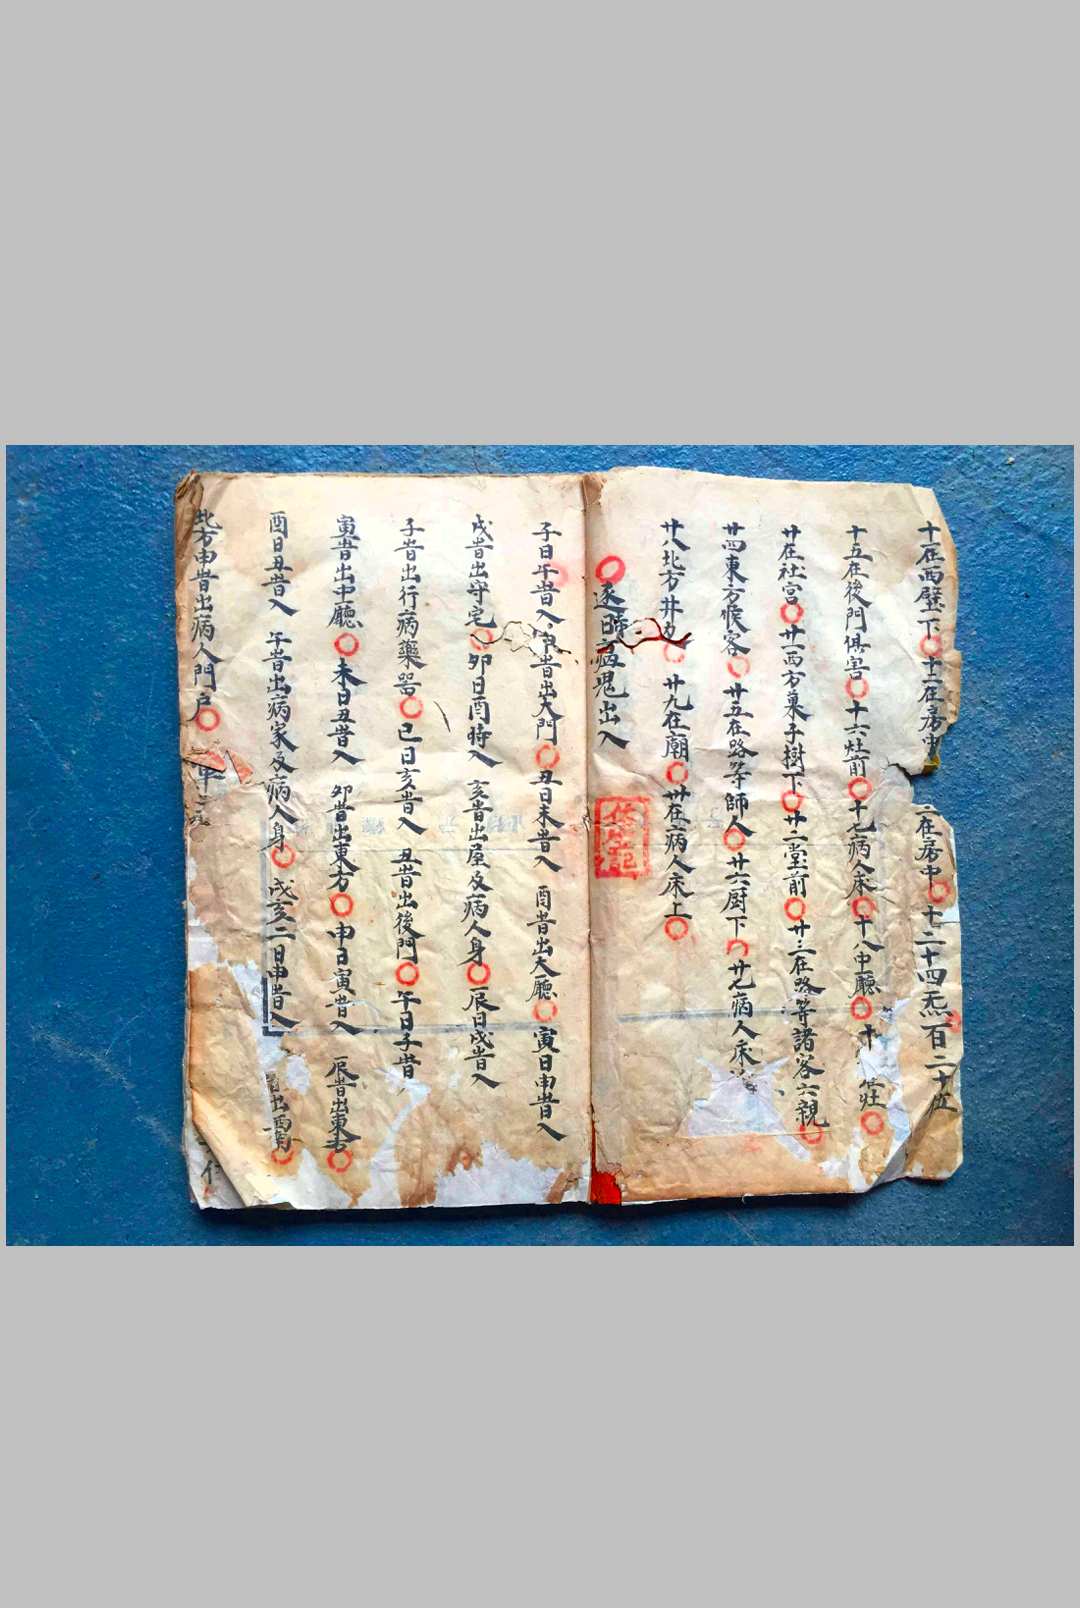 十在西壁下〇十二在房中 在房中〇十二十四炁百二十位
十五在後門俱害〇十六灶前〇十七病人床〇十八中廳〇十
廿在社宫〇廿一西方菓子樹下〇廿二堂前〇廿三在路等諸客六親〇
廿四東方 客〇廿五在路等師人〇廿六厨下〇廿七病人床
廿八北方井 〇廿九在廟〇卅在病人床上〇
〇逐日病鬼出入
子日午昔入申昔出大門〇丑日未昔入 酉昔出大廳〇寅日申昔入
戌昔出守宅〇卯日酉時入 亥昔出屋及病人身〇辰日戌昔入
子昔出行病藥 〇巳日亥昔入 丑昔出後門〇午日子昔
寅昔出中廳〇未日丑昔入 卯昔出東方〇申日寅昔入 辰昔出東 〇
酉日丑昔入 午昔出病家及病人身〇戌亥二日申昔入 出西南〇
北方申昔出病人門户〇